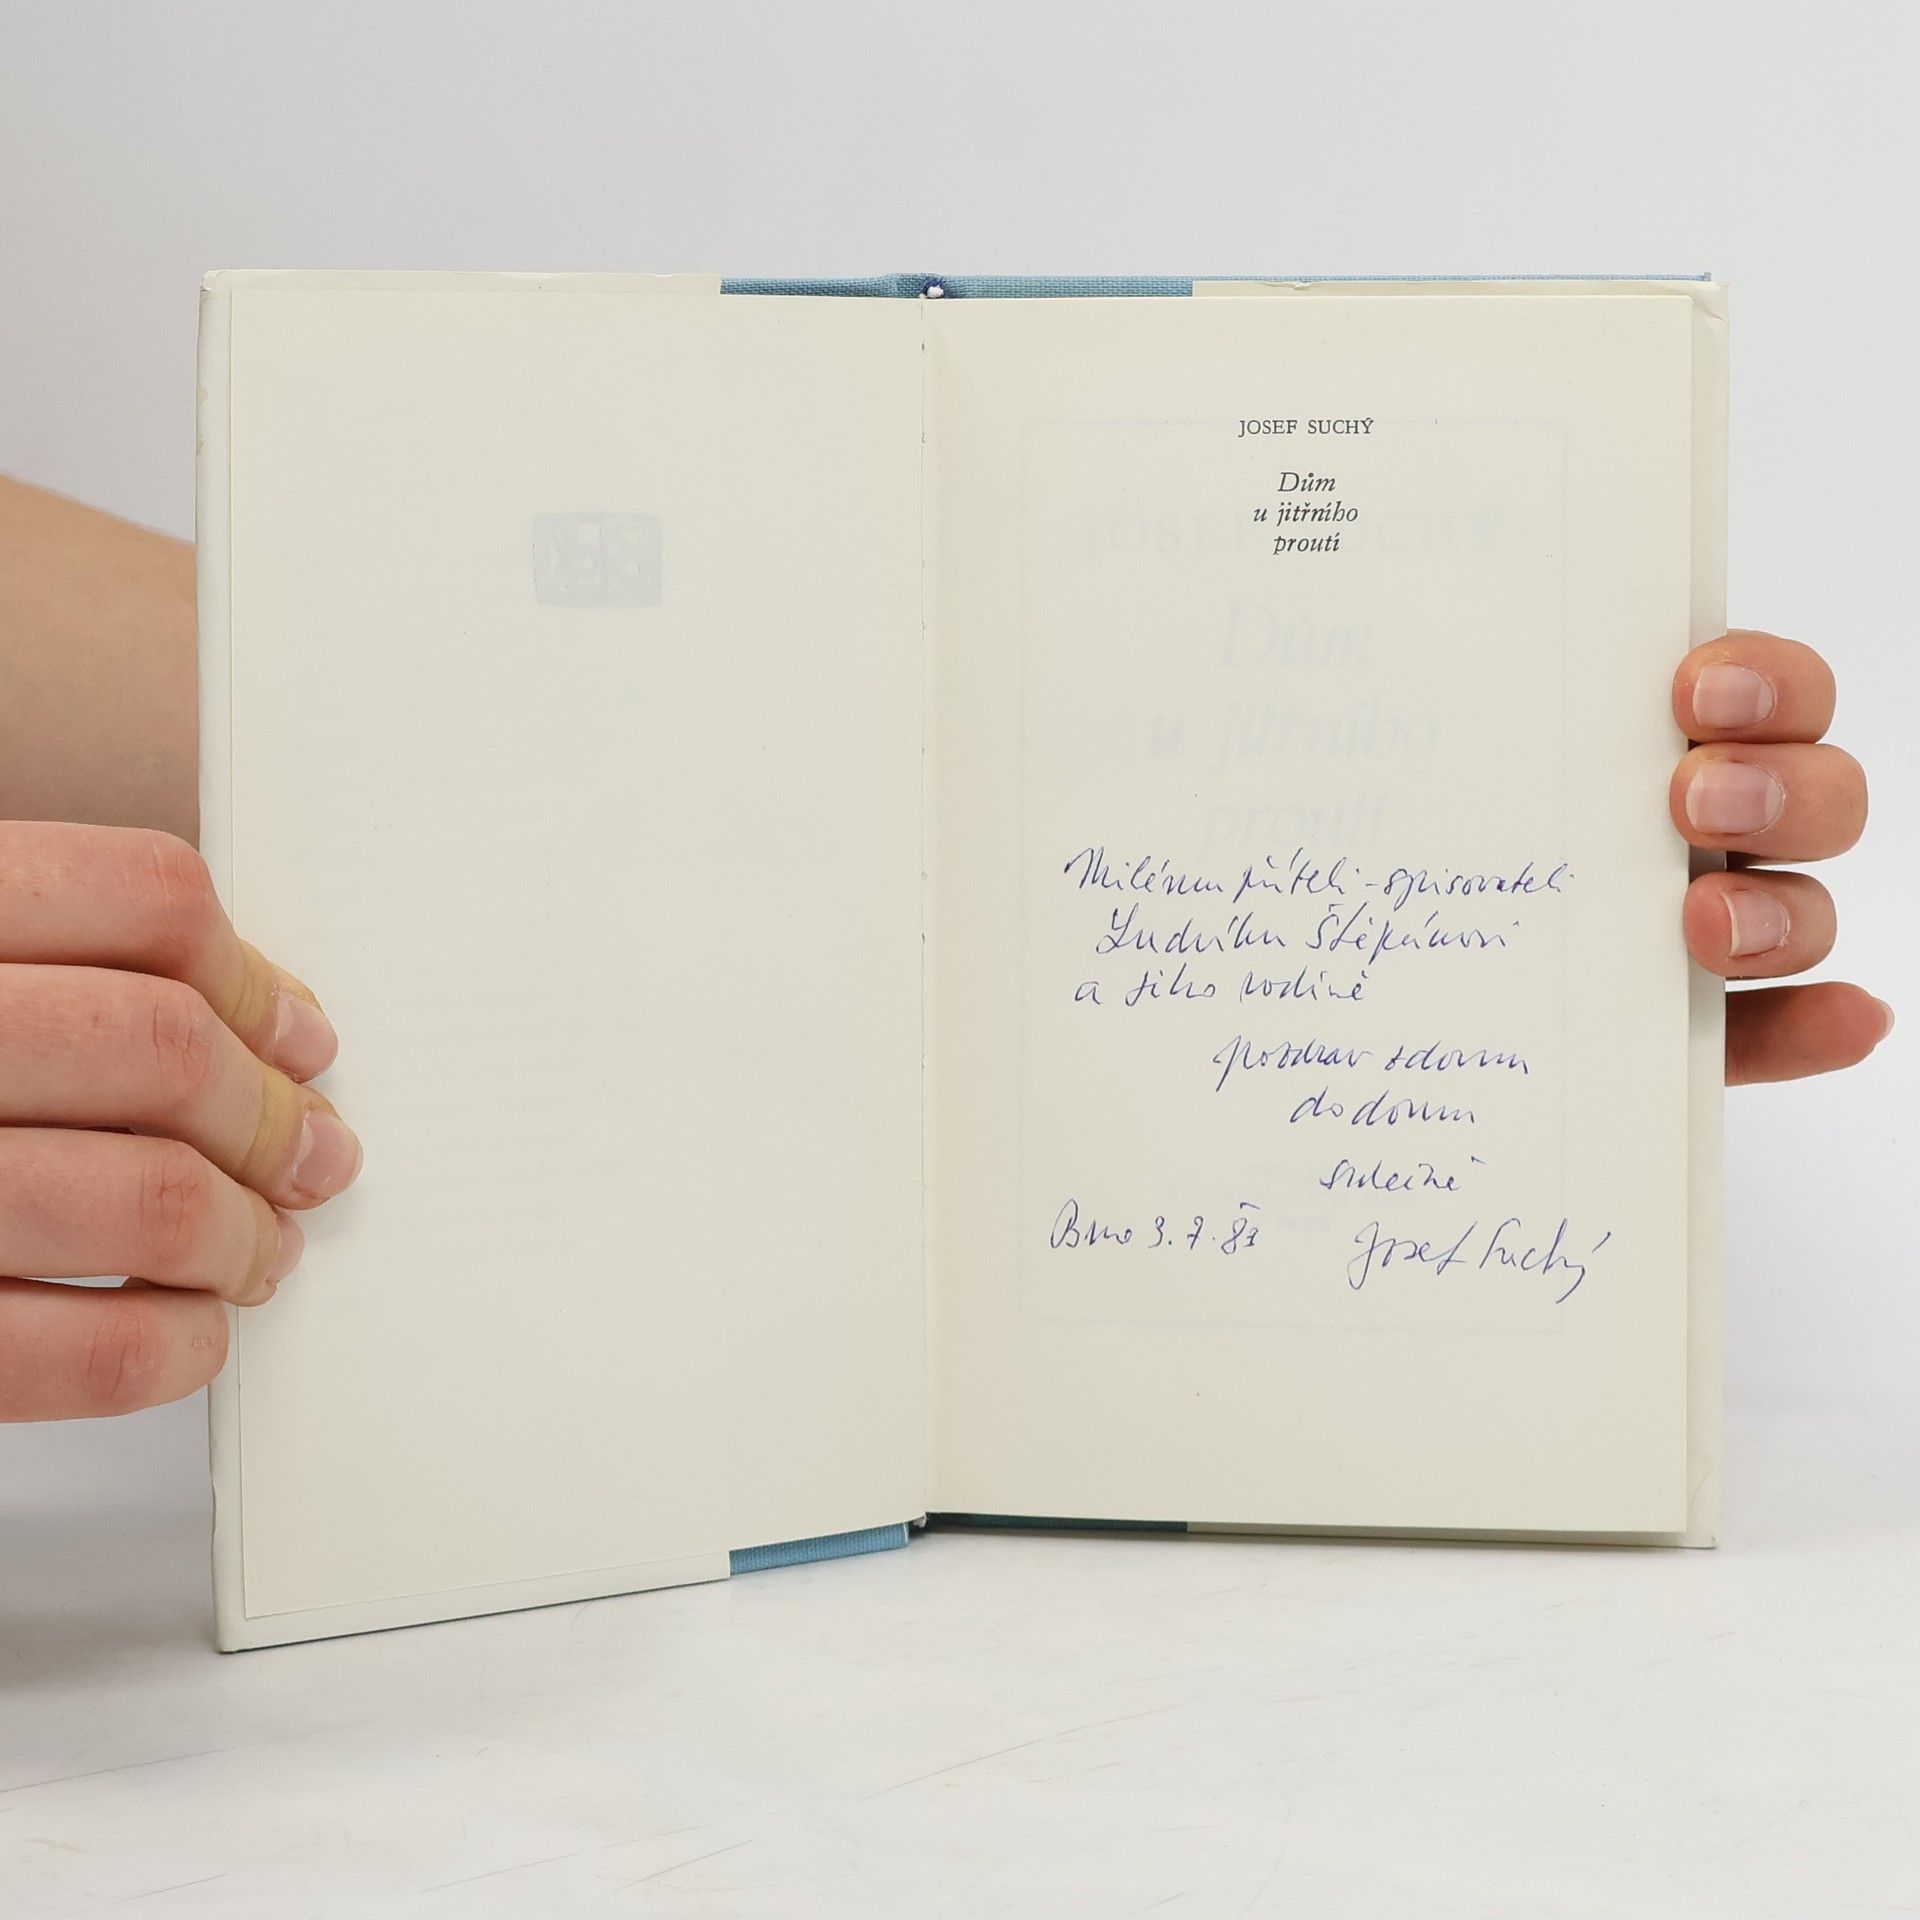 JOSEF SUCHÝ
Dům
u jitřního
proutí
JOSEF SUCHÝ
Dům
u jitřního
proutí
Milému příteli - spisovateli
Ludvíku Štěpánovi
a jeho rodině
pozdrav z domu
do domu
srdečně
Brno 3. 7. 81
Josef Suchý